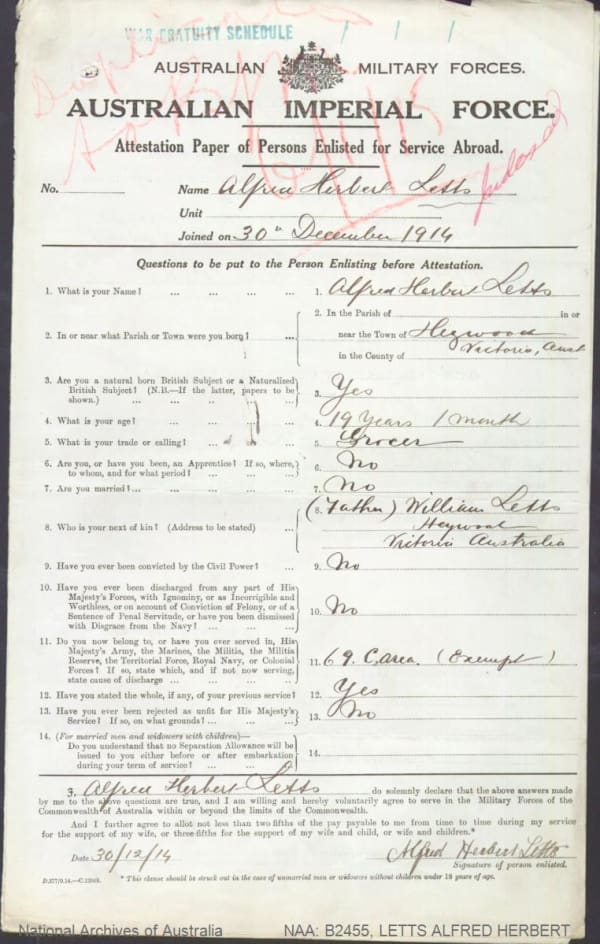 WAR GRATUITY SCHEDULE
AUSTRALIAN MILITARY FORCES.
AUSTRALIAN IMPERIAL FORCE.
Attestation Paper of Persons Enlisted for Service Abroad.
No. Name Alfred Herbert Letts
Unit
Joined on 30th December 1914
Questions to be put to the Person Enlisting before Attestation.
1. What is your Name? ... ... ... ... 1. Alfred Herbert Letts
2. In or near what Parish or Town were you born? ... 2. In the Parish of in or
near the Town of Heywood
in the County of Victoria, Aust
3. Are you a natural born British Subject or a Naturalized
British Subject? (N.B.—If the latter, papers to be
shown.) ... ... ... ... ... 3. Yes
4. What is your age? ... ... ... ... 4. 19 Years 1 month
5. What is your trade or calling? ... ... ... 5. Grocer
6. Are you, or have you been, an Apprentice? If so, where,
to whom, and for what period? ... ... ... 6. No
7. Are you married? ... ... ... ... ... 7. No
8. Who is your next of kin? (Address to be stated) ... 8. (Father) William Letts
Heywood
Victoria Australia
9. Have you ever been convicted by the Civil Power? ... 9. No
10. Have you ever been discharged from any part of His
Majesty's Forces, with Ignominy, or as Incorrigible and
Worthless, or on account of Conviction of Felony, or of a
Sentence of Penal Servitude, or have you been dismissed
with Disgrace from the Navy? ... ... ... 10. No
11. Do you now belong to, or have you ever served in, His
Majesty's Army, the Marines, the Militia, the Militia
Reserve, the Territorial Force, Royal Navy, or Colonial
Forces? If so, state which, and if not now serving,
state cause of discharge ... ... ... 11. 69. C. area. (Exempt)
12. Have you stated the whole, if any, of your previous service? 12. Yes
13. Have you ever been rejected as unfit for His Majesty's
Service? If so, on what grounds? ... ... ... 13. No
14. (For married men and widowers with children)—
Do you understand that no Separation Allowance will be
issued to you either before or after embarkation
during your term of service? ... ... 14.
I, Alfred Herbert Letts do solemnly declare that the above answers made
by me to the above questions are true, and I am willing and hereby voluntarily agree to serve in the Military Forces of the
Commonwealth of Australia within or beyond the limits of the Commonwealth.
And I further agree to allot not less than two fifths of the pay payable to me from time to time during my service
for the support of my wife, or three-fifths for the support of my wife and child, or wife and children.*
Date 30/12/14 Alfred Herbert Letts
Signature of person enlisted.
* This clause should be struck out in the case of unmarried men or widowers without children under 18 years of age.
National Archives of Australia NAA: B2455, LETTS ALFRED HERBERT